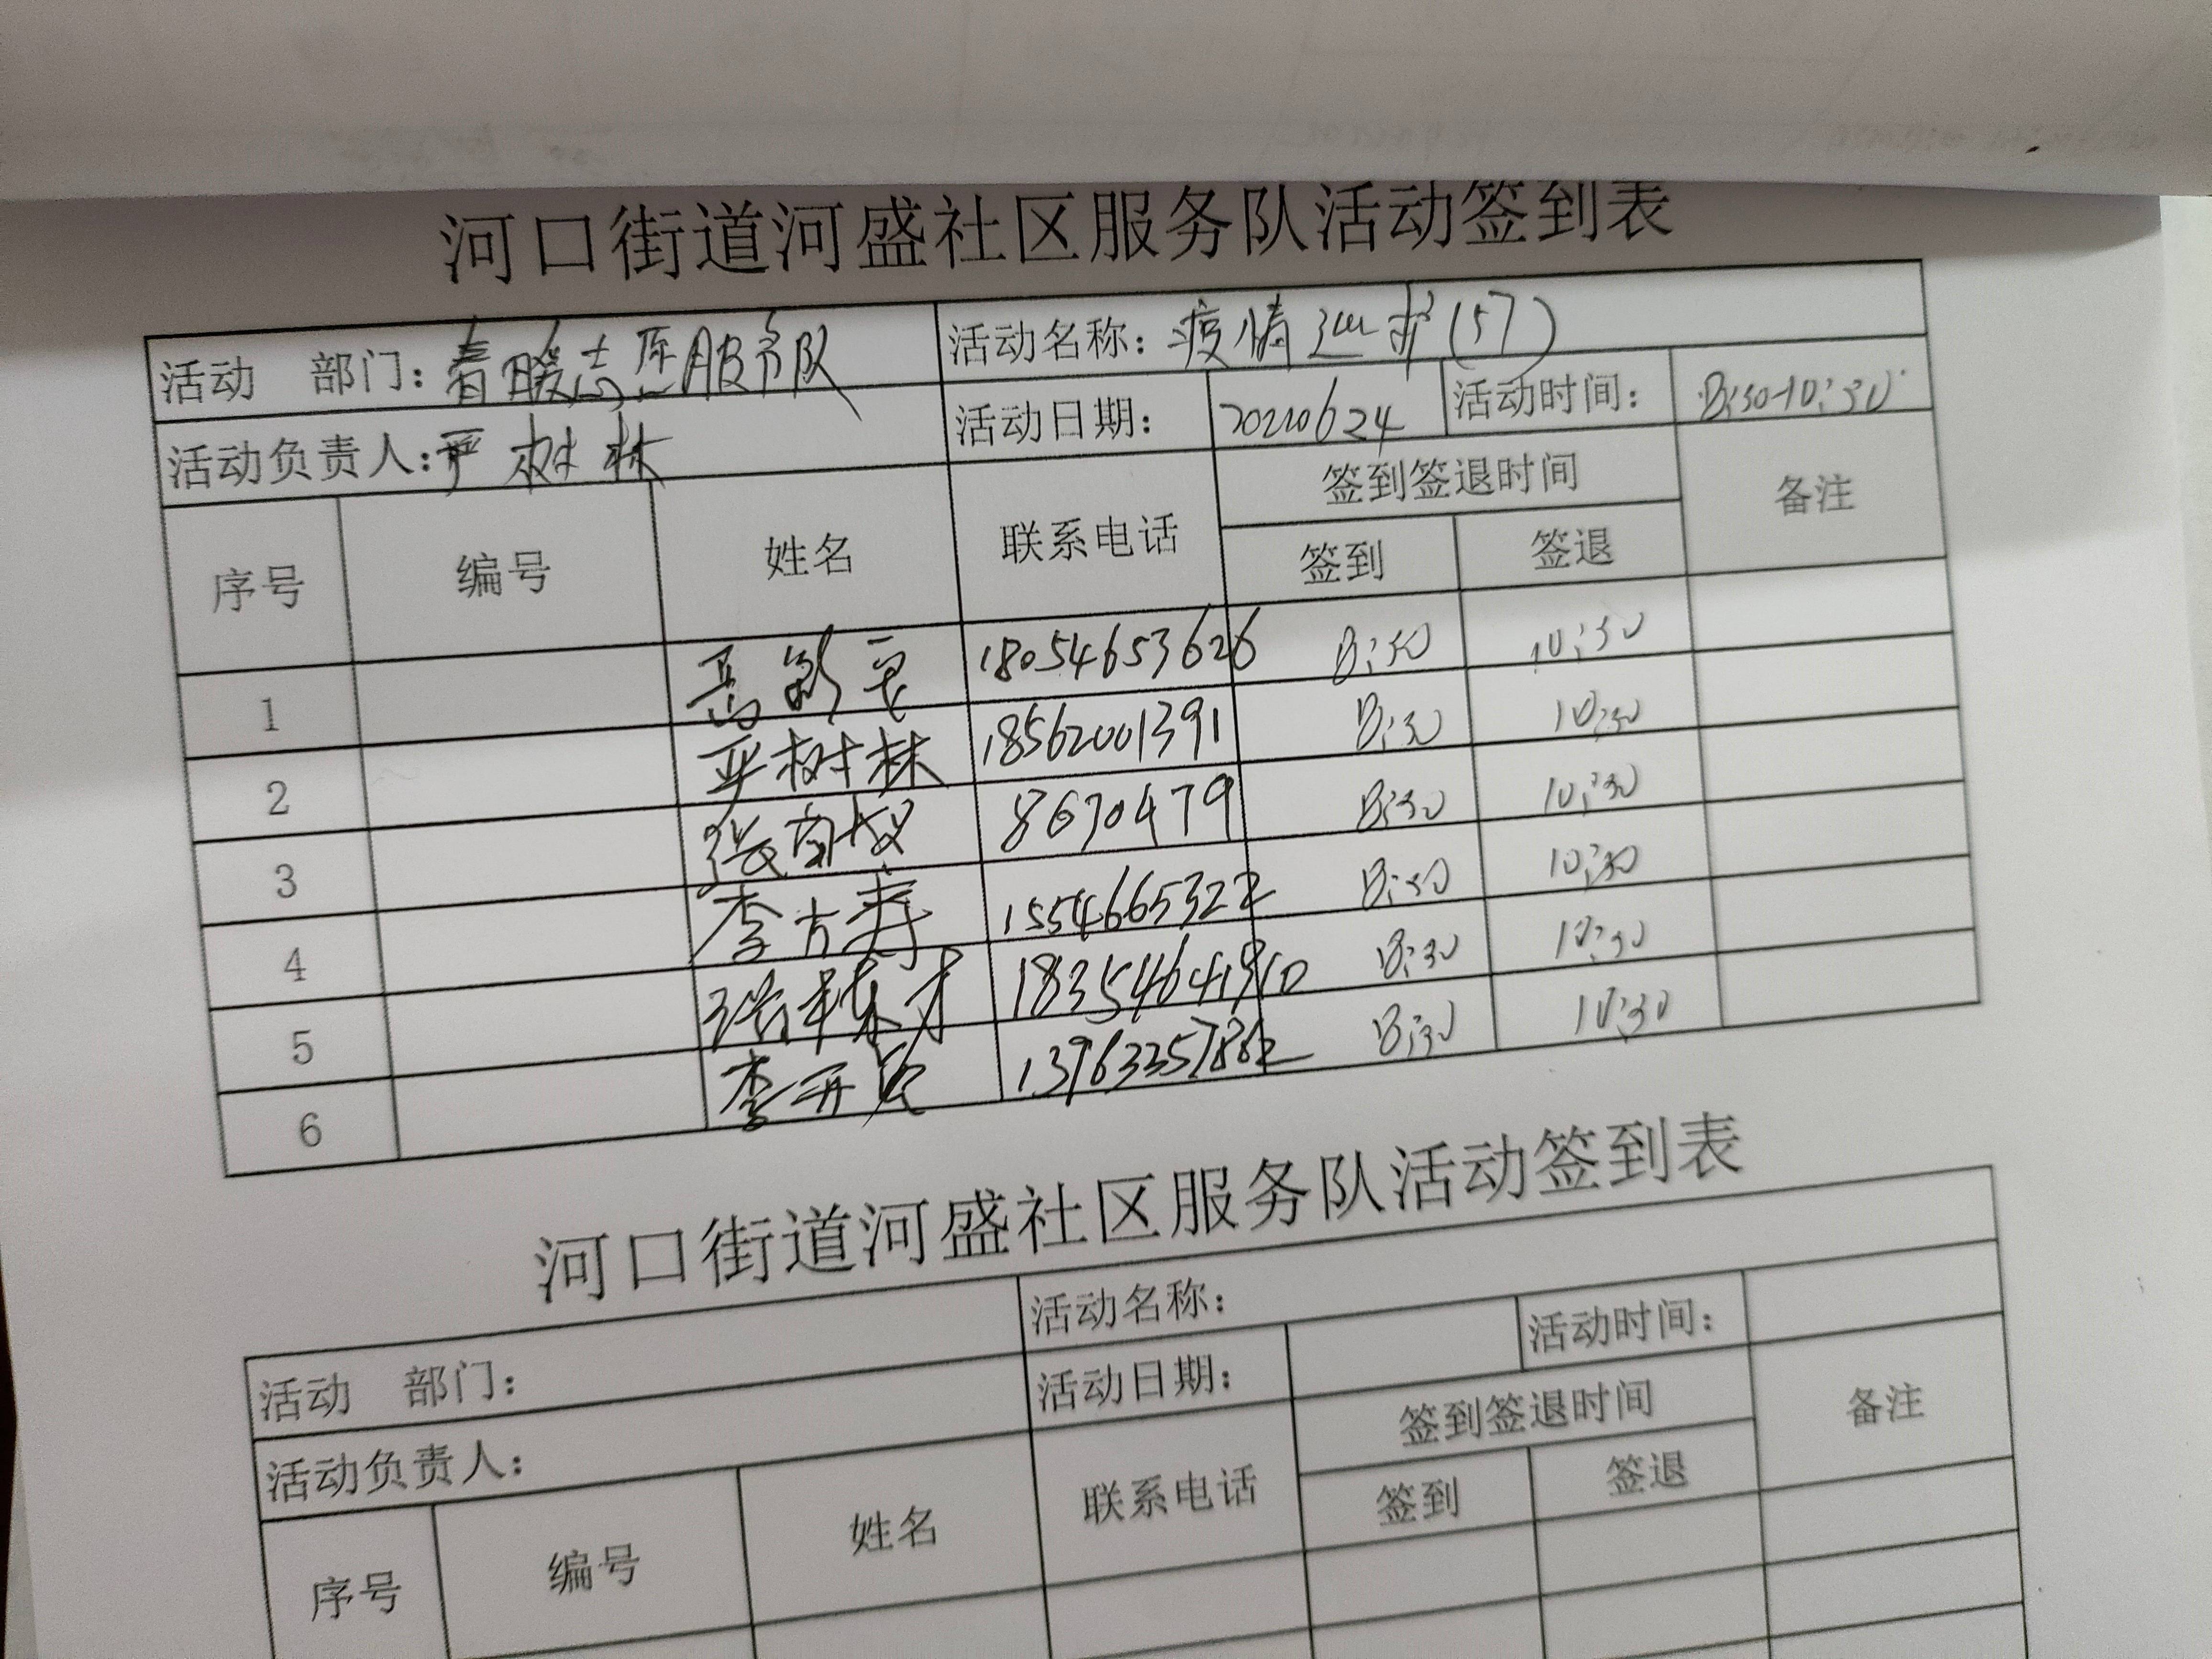 河口街道河盛社区服务队活动签到表
活动 部门：春暖志愿服务队 活动名称：疫情巡逻(57)
活动负责人：严树林 活动日期： 20210624 活动时间： 8:30-10:30
序号 编号 姓名 联系电话 签到签退时间 备注
签到 签退
1 18054653626 8:30 10:30
2 严树林 18562001391 8:30 10:30
3 8670479 8:30 10:30
4 李方寿 15546653222 8:30 10:30
5 18354641910 8:30 10:30
6 13963357862 8:30 10:30
河口街道河盛社区服务队活动签到表
活动 部门： 活动名称：
活动负责人： 活动日期： 活动时间：
序号 编号 姓名 联系电话 签到签退时间 备注
签到 签退